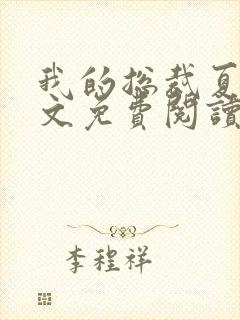 我的总裁夏
文免费閱讀
李程祥